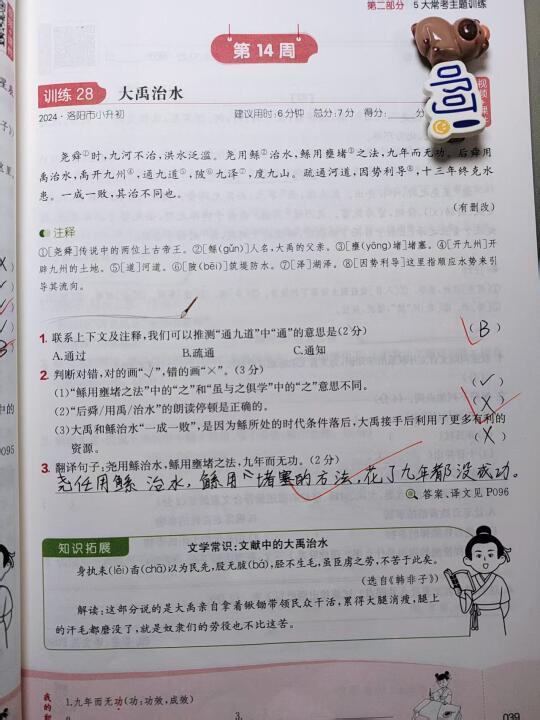 第二部分 5大常考主题训练
第14周
训练28 大禹治水
2024·洛阳市小升初 建议用时:6分钟 总分:7分 得分:____分
啊!
尧舜①时,九河不治,洪水泛滥。尧用鲧②治水,鲧用壅堵③之法,九年而无功。后舜用
禹治水,禹开九州④,通九道⑤,陂⑥九泽⑦,度九山。疏通河道,因势利导⑧,十三年终克水
患。一成一败,其治不同也。
(有删改)
注释
①[尧舜]传说中的两位上古帝王。②[鲧(gǔn)]人名,大禹的父亲。③[壅(yōng)堵]堵塞。④[开九州]开
辟九州的土地。⑤[道]河道。⑥[陂(bēi)]筑堤防水。⑦[泽]湖泽。⑧[因势利导]这里指顺应水势来引
导其流向。
1. 联系上下文及注释,我们可以推测“通九道”中“通”的意思是(2分) (B)
A.通过 B.疏通 C.通知
2. 判断对错,对的画“√”,错的画“×”。(3分)
(1)“鲧用壅堵之法”中的“之”和“虽与之俱学”中的“之”意思不同。 (√)
(2)“后舜/用禹/治水”的朗读停顿是正确的。 (×)
(3)大禹和鲧治水“一成一败”,是因为鲧所处的时代条件落后,大禹接手后利用了更多有利的
资源。 (×)
3. 翻译句子:尧用鲧治水,鲧用壅堵之法,九年而无功。(2分)
尧任用鲧治水,鲧用堵塞的方法,花了九年都没成功。
答案、译文见P096
知识拓展 文学常识:文献中的大禹治水
身执耒(lěi)臿(chā)以为民先,股无胈(bá),胫不生毛,虽臣虏之劳,不苦于此矣。
(选自《韩非子》)
解读:这部分说的是大禹亲自拿着锹锄带领民众干活,累得大腿消瘦,腿上
的汗毛都磨没了,就是奴隶们的劳役也不比这苦。
1.九年而无功(功:功效,成效)
3.
039